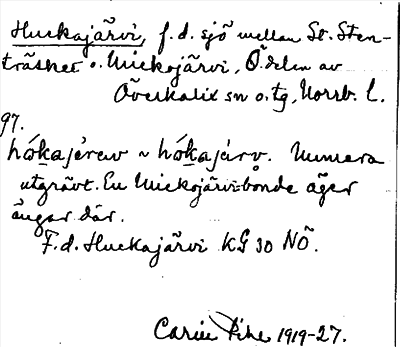 Huckajärvi, f.d. sjö mellan St. Sten-
träsket o. Miekojärvi, Ö. delen av
Överkalix sn o. tg, Norrb. l.
97.
hók̲ajérav ~ hók̲ajárv. Numera
utgrävt. En Miekojärvi-bonde äger
ängar där.
F.d. Huckajärvi KG 30 NÖ.
Carin Pihl 1919-27.